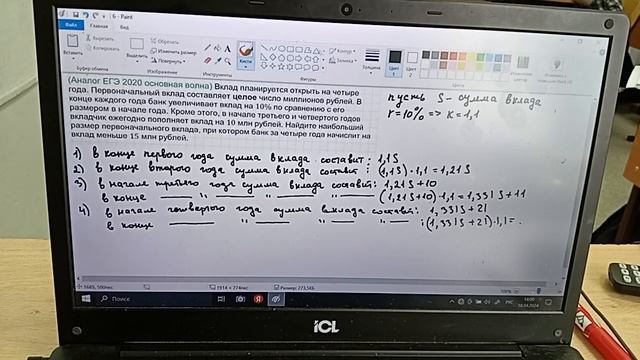 6 - Paint
Файл Главная Вид
Вставить
Вырезать
Копировать
Выделить
Обрезать
Изменить размер
Повернуть
Кисти
Контур
Заливка
Толщина
Цвет 1
Цвет 2
Буфер обмена
Изображение
Инструменты
Фигуры
Цвета
(Аналог ЕГЭ 2020 основная волна) Вклад планируется открыть на четыре
года. Первоначальный вклад составляет целое число миллионов рублей. В
конце каждого года банк увеличивает вклад на 10% по сравнению с его
размером в начале года. Кроме этого, в начале третьего и четвертого годов
вкладчик ежегодно пополняет вклад на 10 млн рублей. Найдите наибольший
размер первоначального вклада, при котором банк за четыре года начислит на
вклад меньше 15 млн рублей.
пусть S - сумма вклада
r=10% => k=1,1
1) в конце первого года сумма вклада составит: 1,1S
2) в конце второго года сумма вклада составит: (1,1S)·1,1=1,21S
3) в начале третьего года сумма вклада составит: 1,21S+10
в конце —— " —— " —— " —— (1,21S+10)·1,1=1,331S+11
4) в начале четвертого года сумма вклада составит: 1,331S+21
в конце —— " —— " —— " —— : (1,331S+21)·1,1=
1645, 500пкс
1914 × 774пкс
Размер: 273,5КБ
100%
Поиск
РУС
14:00
10.04.2024
iCL